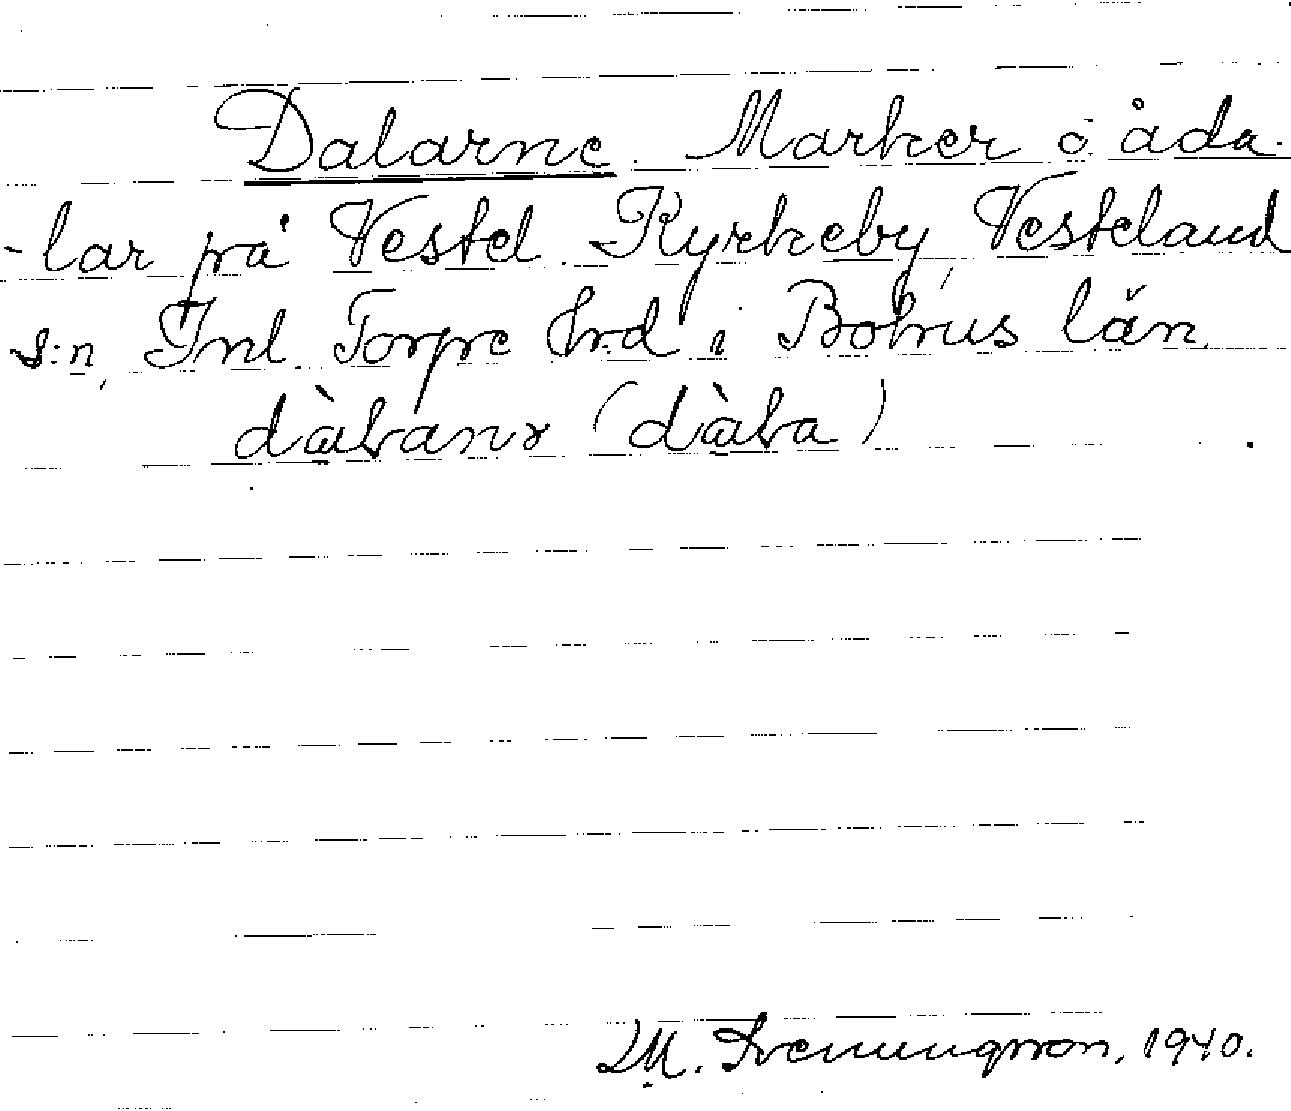 Dalarne. Marker o åda-
-lar på Vestel. Kyrkeby, Vesteland
s:n, Inl. Torpe Hrd i Bohus län.
dàɫanr (dàɫa)
M. 1940.